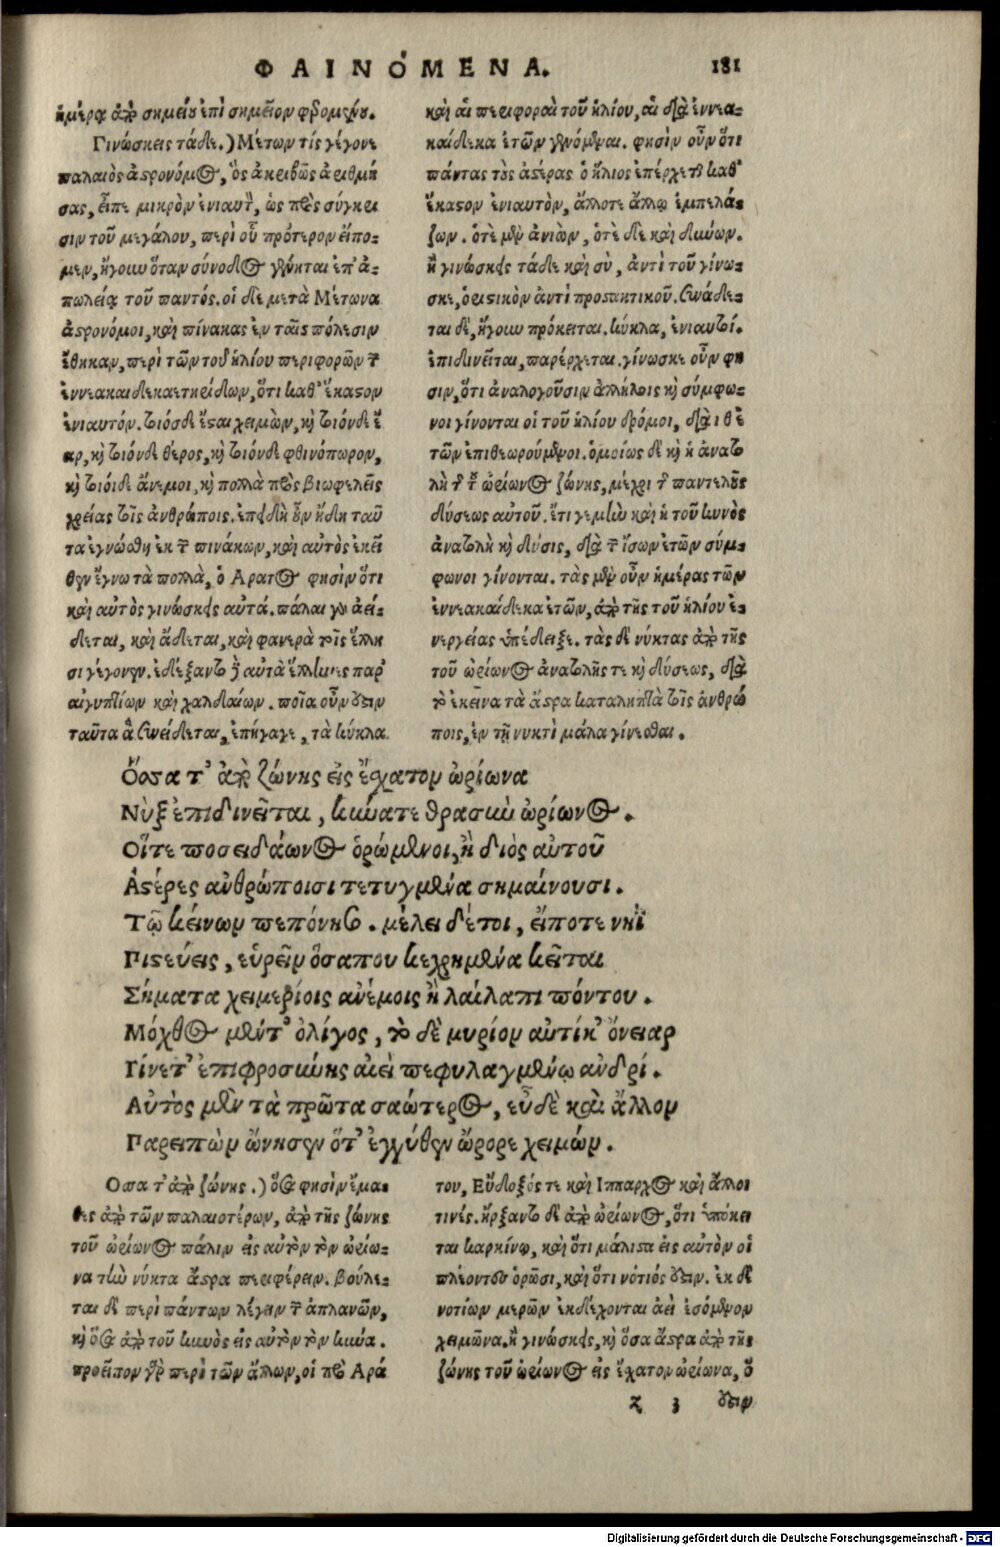 ΦΑΙΝΌΜΕΝΑ. 181
ἡμέρᾳ ἀπὸ σημείου ἐπὶ σημεῖον φερομένου.
Γινώσκεις τάδε.) Μέτων τίς γέγονε
παλαιὸς ἀστρονόμος, ὃς ἀκριβῶς ἀριθμή
σας, εἶπε μικρὸν ἐνιαυτὸν, ὡς πρὸς σύγκρι
σιν τοῦ μεγάλου, περὶ οὗ πρότερον εἴπο-
μεν, ἤγουν ὅταν σύνοδος γένηται ἐπ' ἀ-
πωλείᾳ τοῦ παντός. οἱ δὲ μετὰ Μέτωνα
ἀστρονόμοι, καὶ πίνακας ἐν ταῖς πόλεσιν
ἔθηκαν, περὶ τῶν τοῦ ἡλίου περιφορῶν τῶν
ἐννεακαιδεκαετηρίδων, ὅτι καθ' ἕκαστον
ἐνιαυτόν. τοιόσδε ἔσται χειμὼν, καὶ τοιόνδε ἔ
αρ, καὶ τοιόνδε θέρος, καὶ τοιόνδε φθινόπωρον,
καὶ τοιοίδε ἄνεμοι, καὶ πολλὰ πρὸς βιωφελεῖς
χρείας τοῖς ἀνθρώποις. ἐπειδὴ οὖν ἤδη ταῦ
τα ἐγνώσθη ἐκ τῶν πινάκων, καὶ αὐτὸς ἐκεῖ
θεν ἔγνω τὰ πολλὰ, ὁ Αρατος φησὶν ὅτι
καὶ αὐτὸς γινώσκεις αὐτά. πάλαι γὰρ ἀεί-
δεται, καὶ ᾄδεται, καὶ φανερὰ τοῖς ἕλλη
σι γέγονεν. ἐδέξαντο δὲ αὐτὰ ἕλληνες παρ'
αἰγυπτίων καὶ χαλδαίων. ποῖα οὖν ἐστιν
ταῦτα ἃ συνάδεται, ἐπήγαγε, τὰ κύκλα
καὶ αἱ περιφοραὶ τοῦ ἡλίου, αἱ διὰ ἐννεα-
καίδεκα ἐτῶν γενόμεναι. φησὶν οὖν ὅτι
πάντας τοὺς ἀστέρας ὁ ἥλιος ἐπέρχεται καθ'
ἕκαστον ἐνιαυτὸν, ἄλλοτε ἄλλῳ ἐμπελά-
ζων. ὁτὲ μὲν ἀνιὼν, ὁτὲ δὲ καὶ δύνων.
ἢ γινώσκεις τάδε καὶ σὺ, ἀντὶ τοῦ γίνω-
σκε, ὁριστικὸν ἀντὶ προστακτικοῦ. συνάδε-
ται δὲ, ἤγουν πρόκειται. κύκλα, ἐνιαυτοί.
ἐπιδινεῖται, παρέρχεται. γίνωσκε οὖν φη
σιν, ὅτι ἀναλογοῦσιν ἀλλήλοις καὶ σύμφω-
νοι γίνονται οἱ τοῦ ἡλίου δρόμοι, διὰ ιθ ἐ
τῶν ἐπιθεωρούμενοι. ὁμοίως δὲ καὶ ἡ ἀνατο
λὴ τῆς τοῦ ὠρίωνος ζώνης, μέχρι τῆς παντελοῦς
δύσεως αὐτοῦ. ἔτι γε μὴν καὶ ἡ τοῦ κυνὸς
ἀνατολὴ καὶ δύσις, διὰ τῶν ἴσων ἐτῶν σύμ-
φωνοι γίνονται. τὰς μὲν οὖν ἡμέρας τῶν
ἐννεακαίδεκα ἐτῶν, ἀπὸ τῆς τοῦ ἡλίου ἐ-
νεργείας ὑπέδειξε. τὰς δὲ νύκτας ἀπὸ τῆς
τοῦ ὠρίωνος ἀνατολῆς τε καὶ δύσεως, διὰ
τὸ ἐκεῖνα τὰ ἄστρα καταληπτὰ τοῖς ἀνθρώ
ποις, ἐν τῇ νυκτὶ μάλα γίνεσθαι.
Ὅσσα τ' ἀπὸ ζώνης εἰς ἔσχατον ὠρίωνα
Νὺξ ἐπιδινεῖται, κύνα τε θρασὺν ὠρίωνος.
Οἵτε ποσειδάωνος ὁρώμενοι, ἢ διὸς αὐτοῦ
Ἀστέρες ἀνθρώποισι τετυγμένα σημαίνουσι.
Τῷ κείνων πεπόνησο. μέλει δέ τοι, εἴποτε νηῒ
Πιστεύεις, εὑρεῖν ὅσα που κεχρημένα κεῖται
Σήματα χειμερίοις ἀνέμοις ἢ λαίλαπι πόντου.
Μόχθος μέν τ' ὀλίγος, τὸ δὲ μυρίον αὐτίκ' ὄνειαρ
Γίνετ' ἐπιφροσύνης αἰεὶ πεφυλαγμένῳ ἀνδρί.
Αὐτὸς μὲν τὰ πρῶτα σαώτερος, εὖ δὲ καὶ ἄλλον
Παρειπὼν ὤνησεν ὅτ' ἐγγύθεν ὤρορε χειμών.
Οσσα τ' ἀπὸ ζώνης.) ὅσα φησὶν ἔμα-
θες ἀπὸ τῶν παλαιοτέρων, ἀπὸ τῆς ζώνης
τοῦ ὠρίωνος πάλιν εἰς αὐτὸν τὸν ὠρίω-
να τὴν νύκτα ἄστρα περιφέρειν. βούλε-
ται δὲ περὶ πάντων λέγειν τῶν ἀπλανῶν,
καὶ ὅσα ἀπὸ τοῦ κυνὸς εἰς αὐτὸν τὸν κύνα.
προεῖπον γὰρ περὶ τῶν ἄλλων, οἱ πρὸ Αρά
του, Εὔδοξός τε καὶ Ιππαρχος καὶ ἄλλοι
τινές. ἤρξαντο δὲ ἀπὸ ὠρίωνος, ὅτι ὑπόκει
ται καρκίνῳ, καὶ ὅτι μάλιστα εἰς αὐτὸν οἱ
πλέοντες ὁρῶσι, καὶ ὅτι νότιός ἐστιν. ἐκ δὲ
νοτίων μερῶν ἐκδέχονται ἀεὶ ἐσόμενον
χειμῶνα. ἢ γινώσκεις, καὶ ὅσα ἄστρα ἀπὸ τῆς
ζώνης τοῦ ὠρίωνος εἰς ἔσχατον ὠρίωνα, ὅ
z 3 ἐστιν
Digitalisierung gefördert durch die Deutsche Forschungsgemeinschaft - DFG